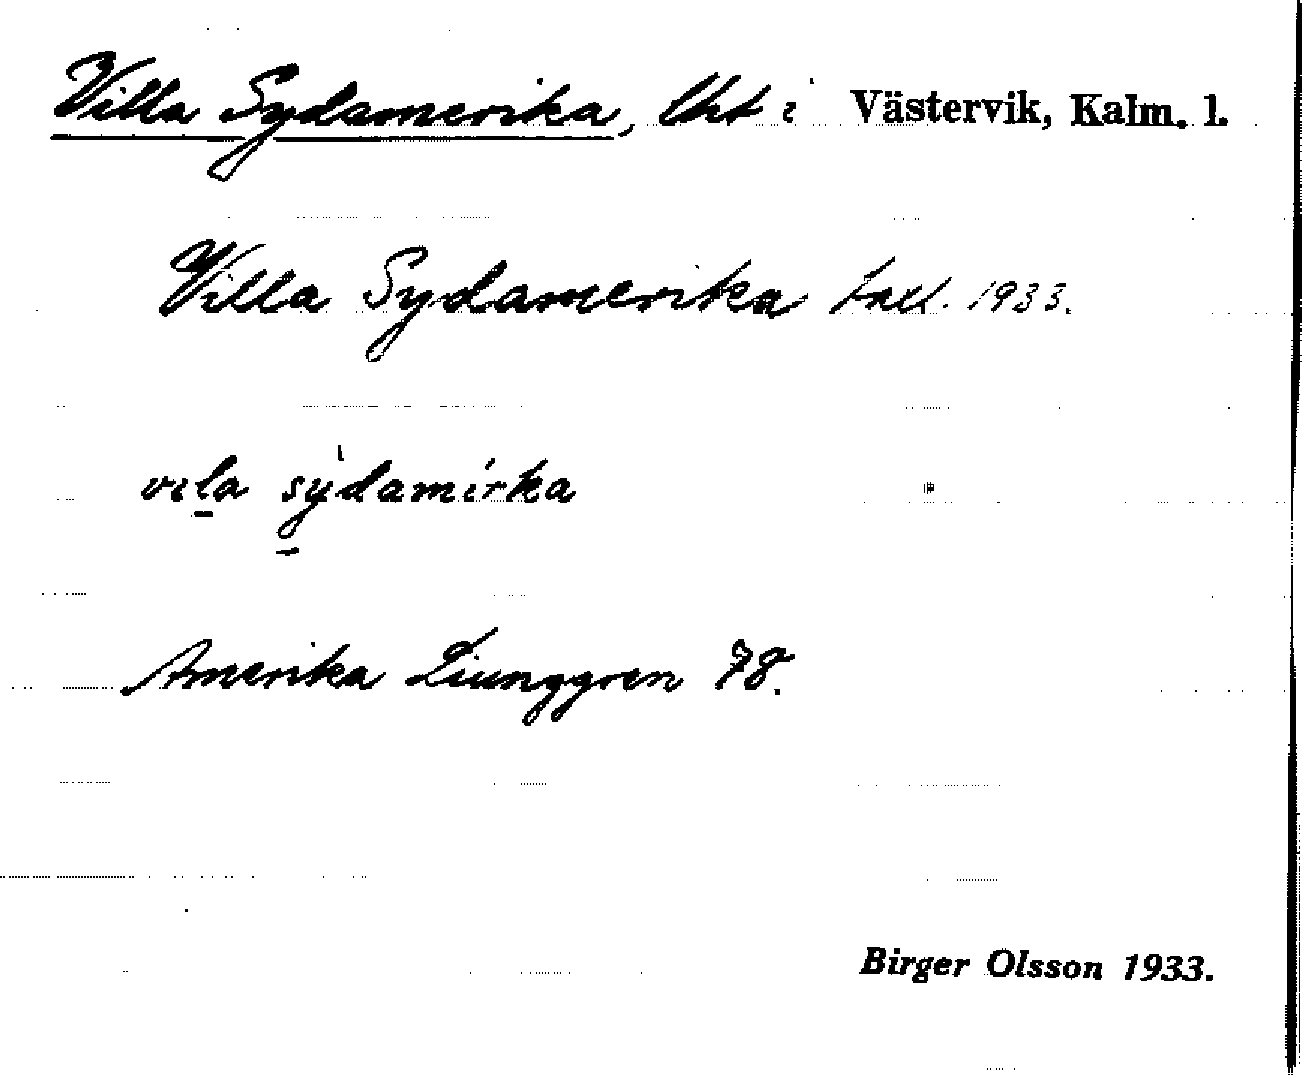 Villa Sydamerika, Lht i Västervik, Kalm. l.
Villa Sydamerika taxl. 1933.
vila sydamirka
Amerika Ljunggren 78.
Birger Olsson 1933.